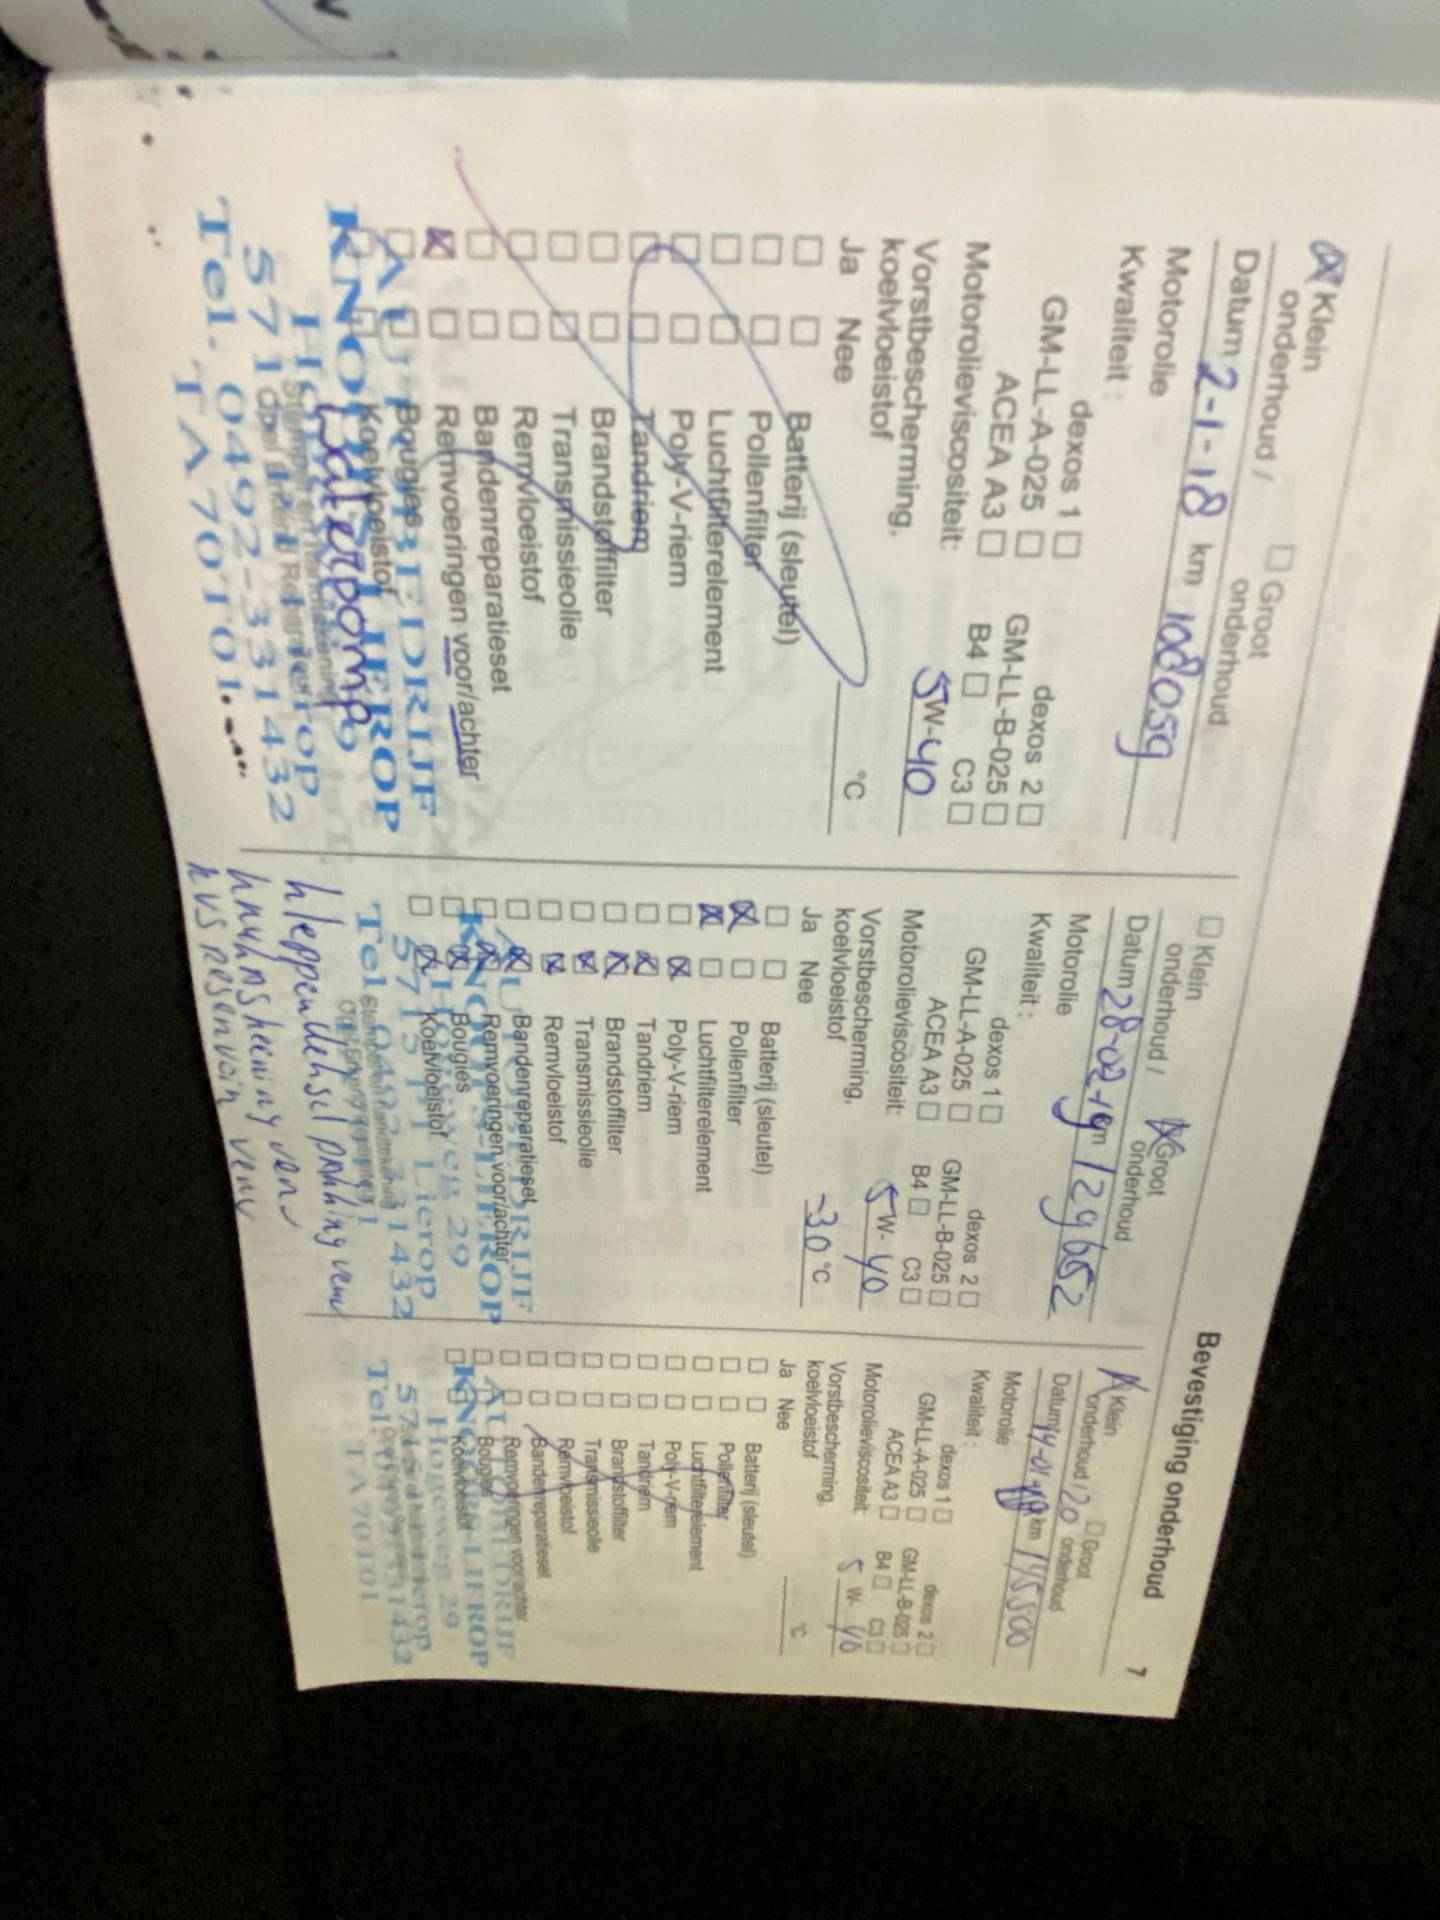 Bevestiging onderhoud
7
Klein
onderhoud /
Groot
onderhoud
Datum 2-1-18 km 108059
Motorolie
Kwaliteit :
dexos 1
dexos 2
GM-LL-A-025
GM-LL-B-025
ACEA A3
B4
C3
Motorolieviscositeit:
5W-40
Vorstbescherming,
koelvloeistof
°C
Ja Nee
Batterij (sleutel)
Pollenfilter
Luchtfilterelement
Poly-V-riem
Tandriem
Brandstoffilter
Transmissieolie
Remvloeistof
Bandenreparatieset
Remvoeringen voor/achter
Bougies
Koelvloeistof
Waterpomp
AUTOBEDRIJF
KNOOPS-LIEROP
Tel. 0492-331432
TA 70101
Klein
onderhoud /
Groot
onderhoud
Datum 28-02-19 km 129652
Motorolie
Kwaliteit :
dexos 1
dexos 2
GM-LL-A-025
GM-LL-B-025
ACEA A3
B4
C3
Motorolieviscositeit:
5W-40
Vorstbescherming,
koelvloeistof
-30 °C
Ja Nee
Batterij (sleutel)
Pollenfilter
Luchtfilterelement
Poly-V-riem
Tandriem
Brandstoffilter
Transmissieolie
Remvloeistof
Bandenreparatieset
Remvoeringen voor/achter
Bougies
Koelvloeistof
AUTOBEDRIJF
KNOOPS-LIEROP
Tel. 0492-331432
kleppendeksel pakking
Klein
onderhoud / 20
Groot
onderhoud
Datum 14-01- km 145500
Motorolie
Kwaliteit :
dexos 1
dexos 2
GM-LL-A-025
GM-LL-B-025
ACEA A3
B4
C3
Motorolieviscositeit:
5 W- 40
Vorstbescherming,
koelvloeistof
°C
Ja Nee
Batterij (sleutel)
Pollenfilter
Luchtfilterelement
Poly-V-riem
Tandriem
Brandstoffilter
Transmissieolie
Remvloeistof
Bandenreparatieset
Remvoeringen voor/achter
Bougies
Koelvloeistof
AUTOBEDRIJF
KNOOPS-LIEROP
TA 70101